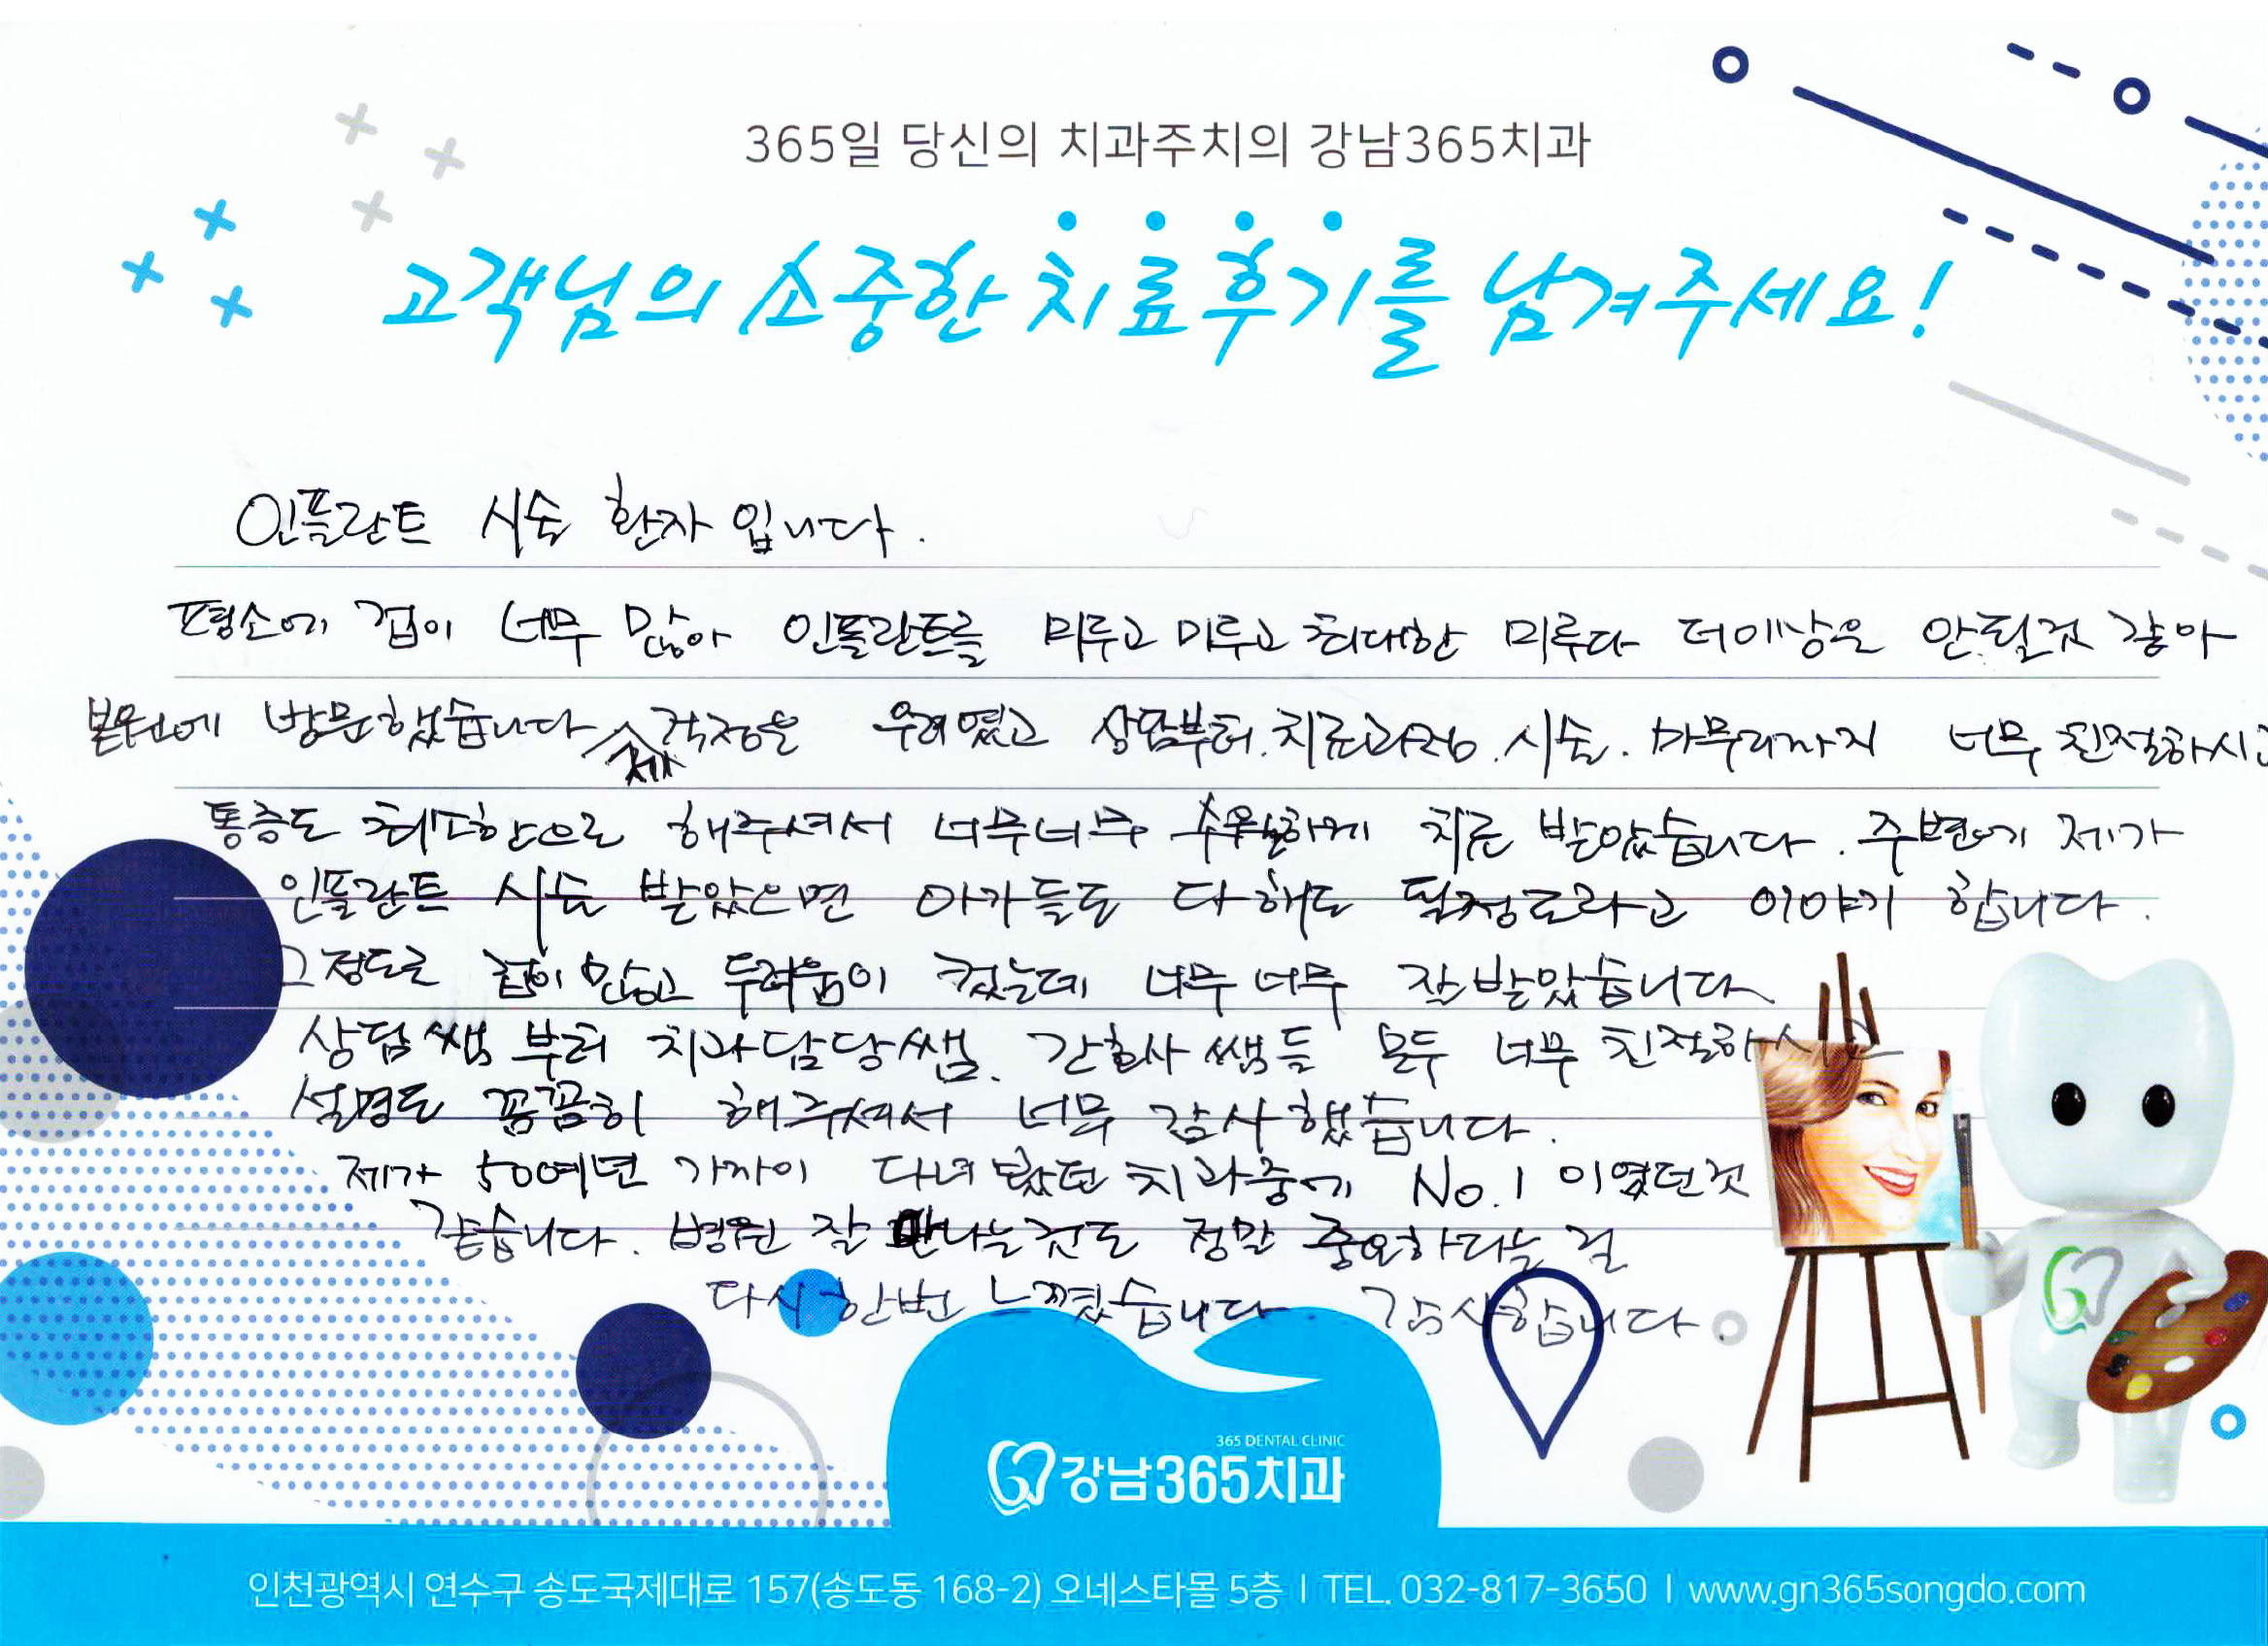 365일 당신의 치과주치의 강남365치과
고객님의 소중한 치료후기를 남겨주세요!
인플란트 시술 환자 입니다.
평소에 겁이 너무 많아 인플란트를 미루고 미루고 최대한 미루다 더이상은 안될것 같아
본원에 방문했습니다 제 걱정을 우려였고 상담부터. 치료과정. 시술. 마무리까지 너무 친절하시고
통증도 최소한으로 해주셔서 너무너무 수월하게 치료 받았습니다. 주변에 제가
인플란트 시술 받았으면 아가들도 다 해도 될정도라고 이야기 합니다.
그정도로 겁이 많고 두려움이 컸는데 너무 너무 잘 받았습니다
상담쌤 부터 치과담당쌤. 간호사 쌤들 모두 너무 친절하시고
설명도 꼼꼼히 해주셔서 너무 감사했습니다.
제가 50여년 가까이 다녀 봤던 치과중에 No.1 이였던것
같습니다. 병원 잘 만나는것도 정말 중요하다는 걸
다시 한번 느꼈습니다 감사합니다.
365 DENTAL CLINIC
강남365치과
인천광역시 연수구 송도국제대로 157(송도동 168-2) 오네스타몰 5층 I TEL. 032-817-3650 I www.gn365songdo.com